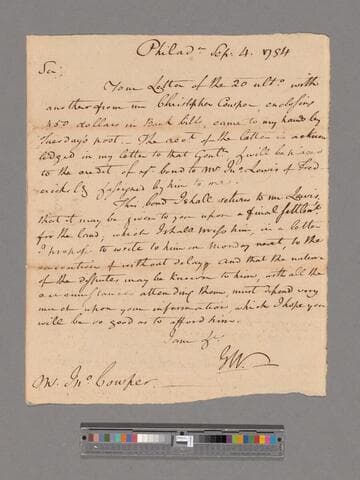 Philad.ª Sep. 4. 1794
Sir,
Your Letter of the 20 ult.º with
another from Mr Christopher Cowper, enclosing
450 dollars in Bank bills, came to my hands by
Tuesday's post. The rec.t of the latter is acknow
ledged in my letter to that Gent.n & will be passed
to the credit of y.r bond to Mr Jn.º Lewis of Fred
ericksb.g assigned by him to me.
This bond I shall return to Mr Lewis,
that it may be given to you upon a final settlem.t
for the land, which I shall press him, in a letter
I propose to write to him on Monday next, to the
execution of without delay; and that the nature
of the disputes may be known to him, with all the
circumstances attending them must depend very
much upon your information, which I hope you
will be so good as to afford him.
I am &c
GW.
Mr. Jn.º Cowper.